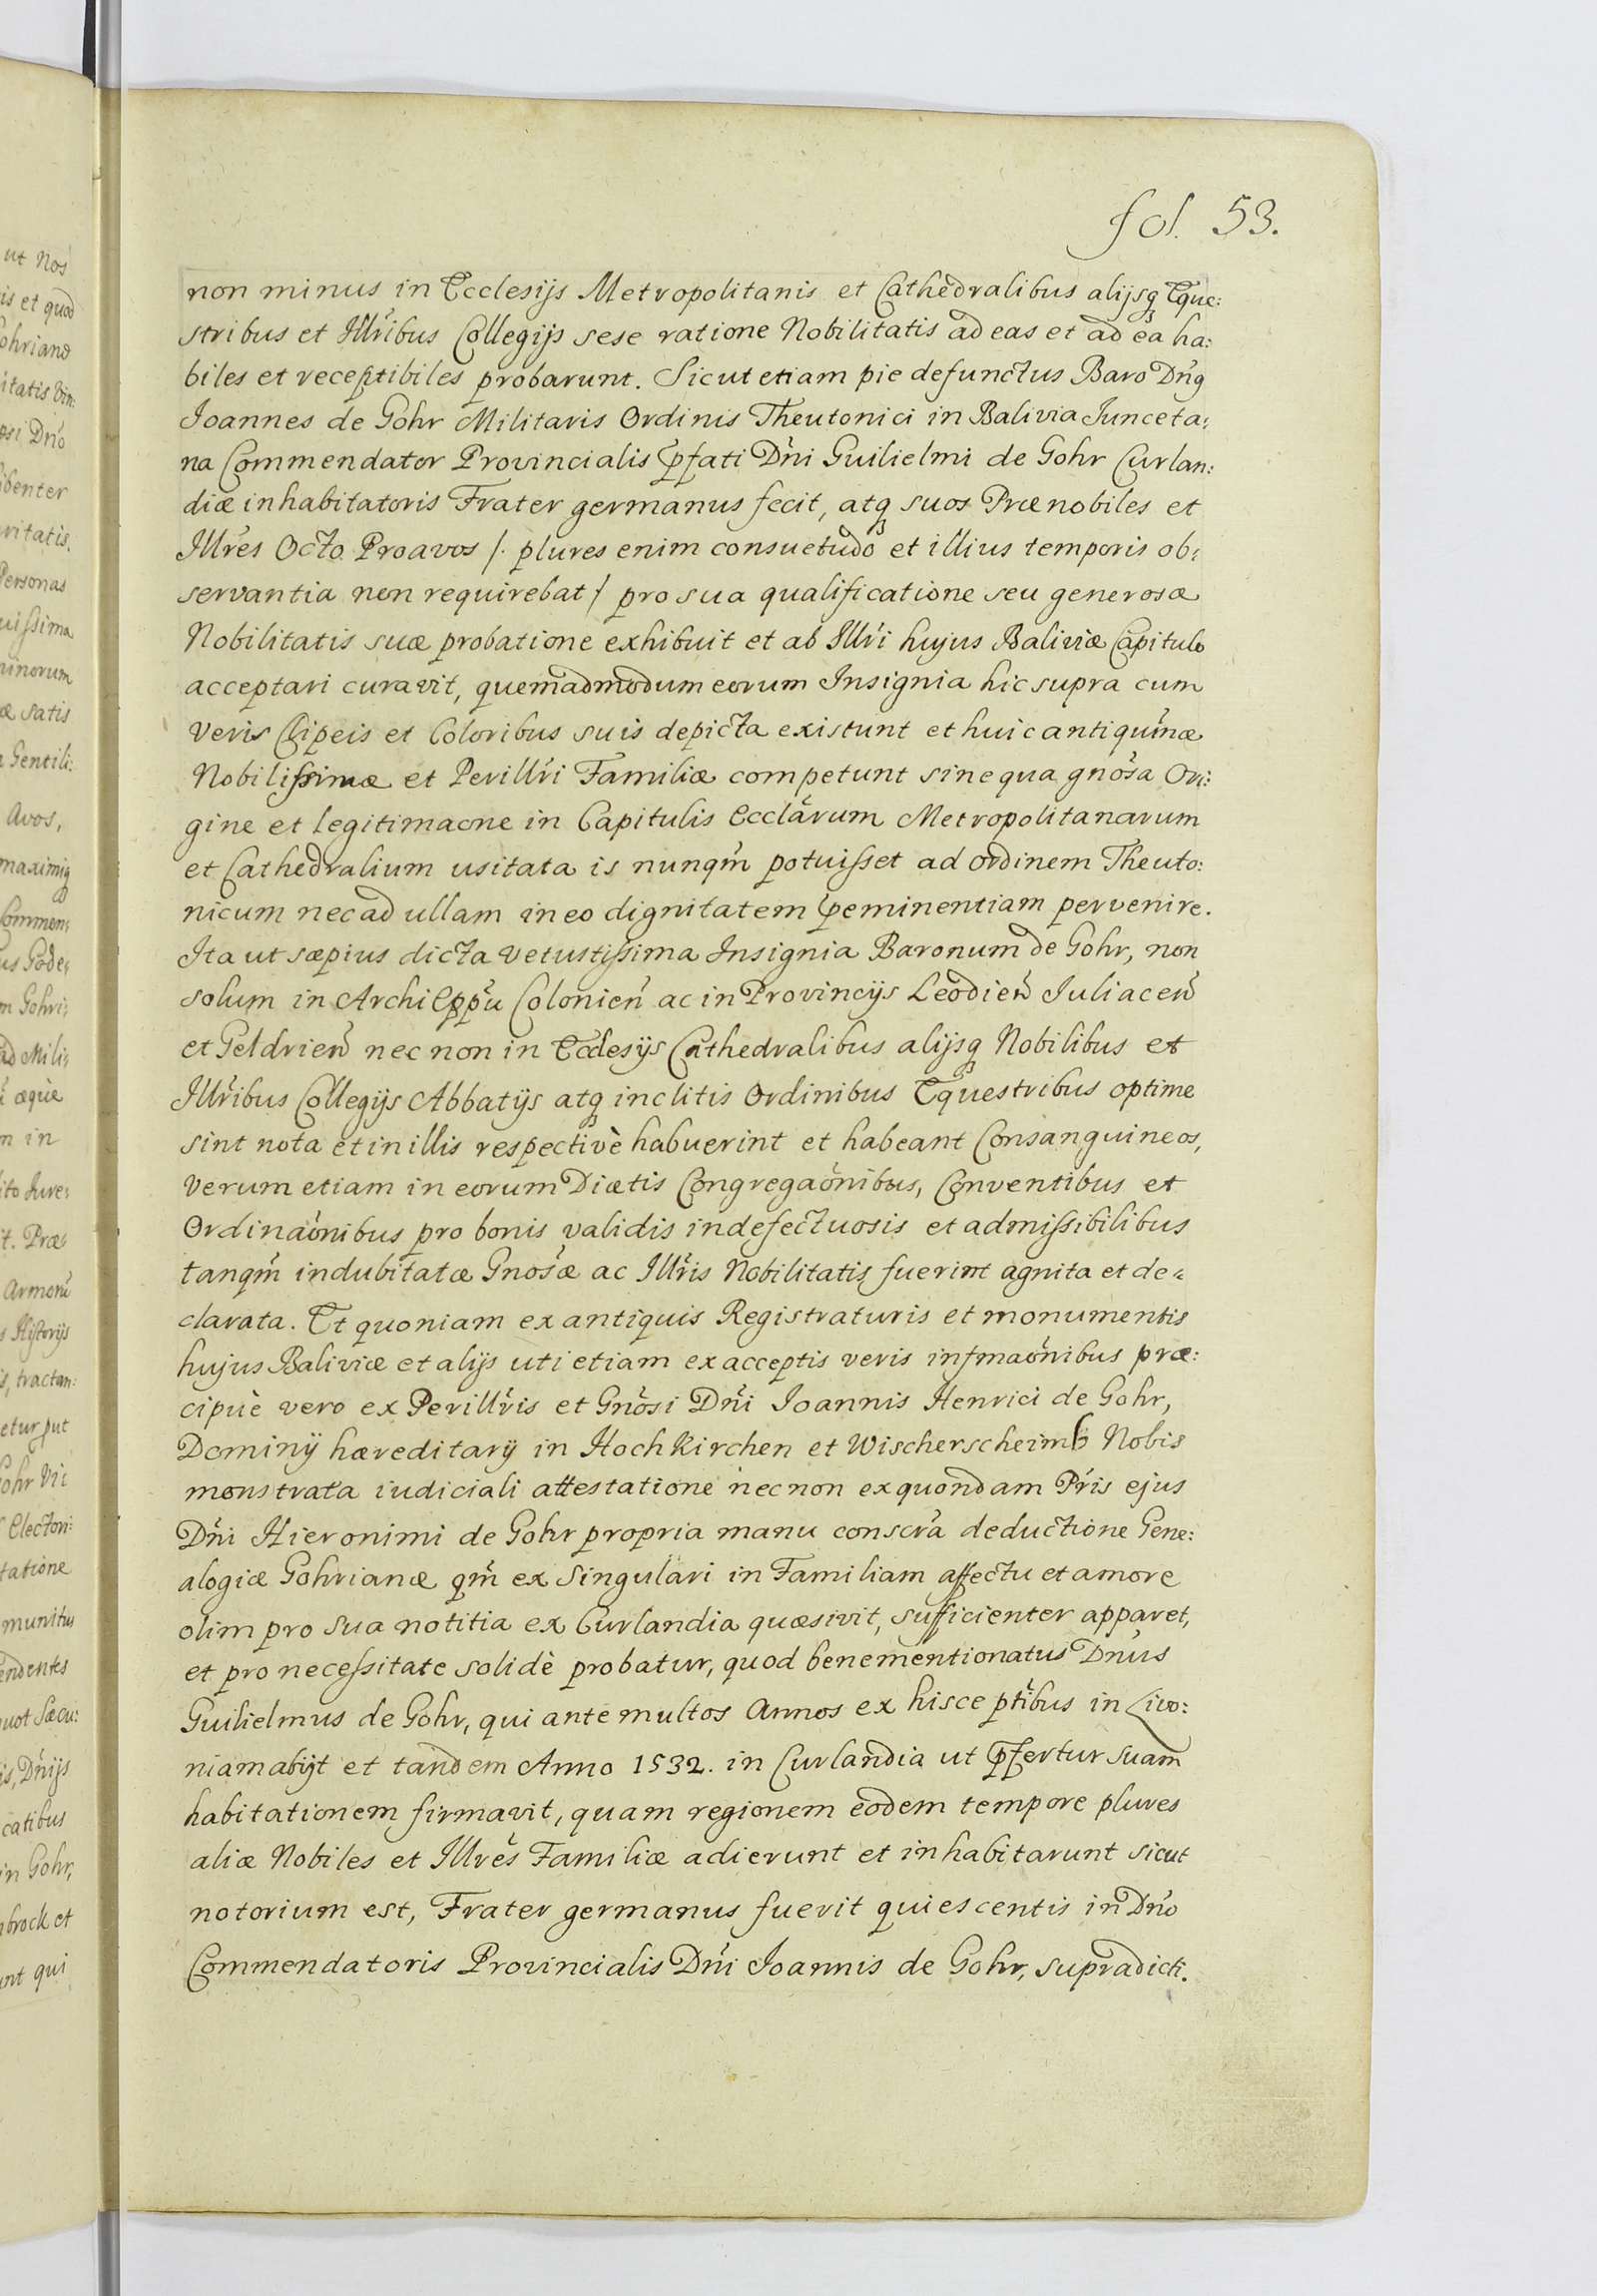 fol. 53.
non minus in Ecclesijs Metropolitanis et Cathedralibus alijsq̃ Eque:
stribus et Illr̃ibus Collegijs sese ratione Nobilitatis ad eas et ad ea ha:
biles et receptibiles probarunt. Sicut etiam pie defunctus Baro Dñg
Ioannes de Gohr Militaris Ordinis Theutonici in Balivia Iunceta:
na Commendator Provincialis p̃fati Dñi Guilielmi de Gohr Curlan:
diæ inhabitatoris Frater germanus fecit, atq̃ suos Prænobiles et
Illr̃es Octo Proavos /. plures enim consuetudo et illius temporis ob:
servantia non requirebat / pro sua qualificatione seu generosæ
Nobilitatis suæ probatione exhibuit et ab Illr̃i hujus Baliviæ Capitulo
acceptari curavit, quemadmodum eorum Insignia hic supra cum
veris Clipeis et Coloribus suis depicta existunt et huic antiquim̃æ
Nobilissimæ et Perillr̃i Familiæ competunt sine qua gnõsa Ori:
gine et legitimaone in Capitulis Ecclãrum Metropolitanarum
et Cathedralium usitata is nunqm̃ potuisset ad ordinem Theuto:
nicum nec ad ullam in eo dignitatem p̃eminentiam pervenire.
Ita ut sæpius dicta vetustissima Insignia Baronum de Gohr, non
solum in ArchiEpp̃u Colonieñ ac in Provincijs Leodieñ Iuliaceñ
et Geldrieñ nec non in Ecclesijs Cathedralibus alijsq̃ Nobilibus et
Illr̃ibus Collegijs Abbatijs atq̃ inclitis Ordinibus Equestribus optime
sint nota et in illis respectivè habuerint et habeant Consanguineos,
verum etiam in eorum Diætis Congregaõnibus, Conventibus et
Ordinaõnibus pro bonis validis indefectuosis et admissibilibus
tanqm̃ indubitatæ Gnõsæ ac Illr̃is Nobilitatis fuerint agnita et de:
clarata. Et quoniam ex antiquis Registraturis et monumentis
hujus Baliviæ et alijs uti etiam ex acceptis veris infmaõnibus præ:
cipuè vero ex Perillr̃is et Gnõsi Dñi Ioannis Henrici de Gohr,
Dominÿ hæreditarÿ in Hochkirchen et Wischerscheimb Nobis
monstrata iudiciali attestatione nec non ex quondam Pr̃is ejus
Dñi Hieronimi de Gohr propria manu conscrã deductione Gene:
alogiæ Gohrianæ qm̃ ex singulari in Familiam affectu et amore
olim pro sua notitia ex Curlandia quæsivit, sufficienter apparet,
et pro necessitate solidè probatur, quod benementionatus Dñus
Guilielmus de Gohr, qui ante multos Annos ex hisce ptĩbus in Livo:
niam abijt et tandem Anno 1532. in Curlandia ut p̃fertur suam
habitationem firmavit, quam regionem eodem tempore plures
aliæ Nobiles et Illr̃es Familiæ adierunt et inhabitarunt sicut
notorium est, Frater germanus fuerit quiescentis in Dño
Commendatoris Provincialis Dñi Ioannis de Gohr, supradicti.